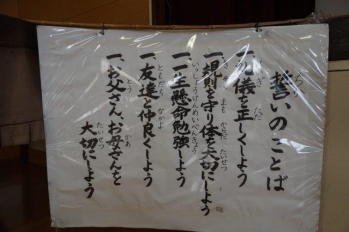 誓いのことば
一、礼儀を正しくしよう
一、規則を守り体を大切にしよう
一、一生懸命勉強しよう
一、友達と仲良くしよう
一、お父さん、お母さんを
大切にしよう